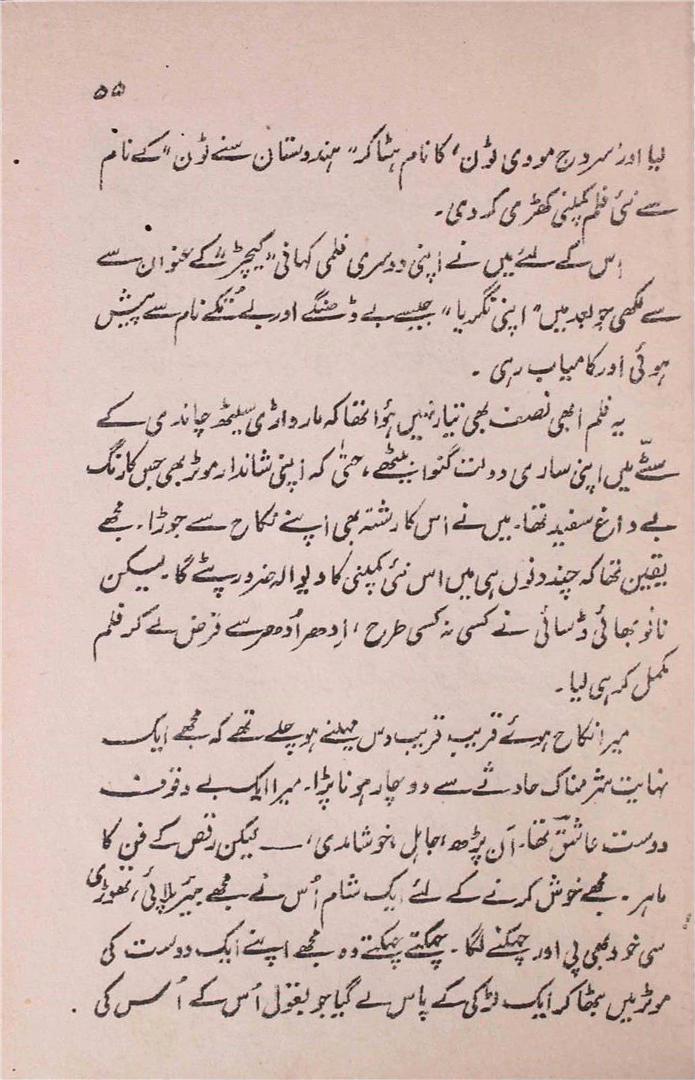 ۵۵
لیا اور 'سروج مووی ٹون' کا نام ہٹا کر "ہندوستان سنے ٹون" کے نام
سے نئی فلم کمپنی کھڑی کر دی۔
اس کے لئے میں نے اپنی دوسری فلمی کہانی "کیچڑ" کے عنوان سے
سے لکھی جو بعد میں "اپنی نگریا" جیسے بے ڈھنگے اور بے تُکے نام سے پیش
ہوئی اور کامیاب رہی۔
یہ فلم ابھی نصف بھی تیار نہیں ہوا تھا کہ مارواڑی سیٹھ چاندی کے
سٹّے میں اپنی ساری دولت گنوا بیٹھے، حتیٰ کہ اپنی شاندار موٹر بھی جس کا رنگ
بے داغ سفید تھا۔ میں نے اس کا رشتہ بھی اپنے نکاح سے جوڑا۔ مجھے
یقین تھا کہ چند دنوں ہی میں اس نئی کمپنی کا دیوالہ ضرور پٹے گا۔ لیکن
نانو بھائی ڈسائی نے کسی نہ کسی طرح، اِدھر اُدھر سے قرض لے کر فلم
مکمل کر ہی لیا۔
میرا نکاح ہوئے قریب قریب دس مہینے ہو چلے تھے کہ مجھے ایک
نہایت شرمناک حادثے سے دو چار ہونا پڑا۔ میرا ایک بے وقوف
دوست عاشق تھا۔ اَن پڑھ، جاہل، خوشامدی، — لیکن رقص کے فن کا
ماہر۔ مجھے خوش کرنے کے لئے ایک شام اُس نے مجھے بیئر پلائی، تھوڑی
سی خود بھی پی اور چہکنے لگا۔ چہکتے چہکتے وہ مجھے اپنے ایک دوست کی
موٹر میں بٹھا کر ایک لڑکی کے پاس لے گیا جو بقول اُس کے اُس کی